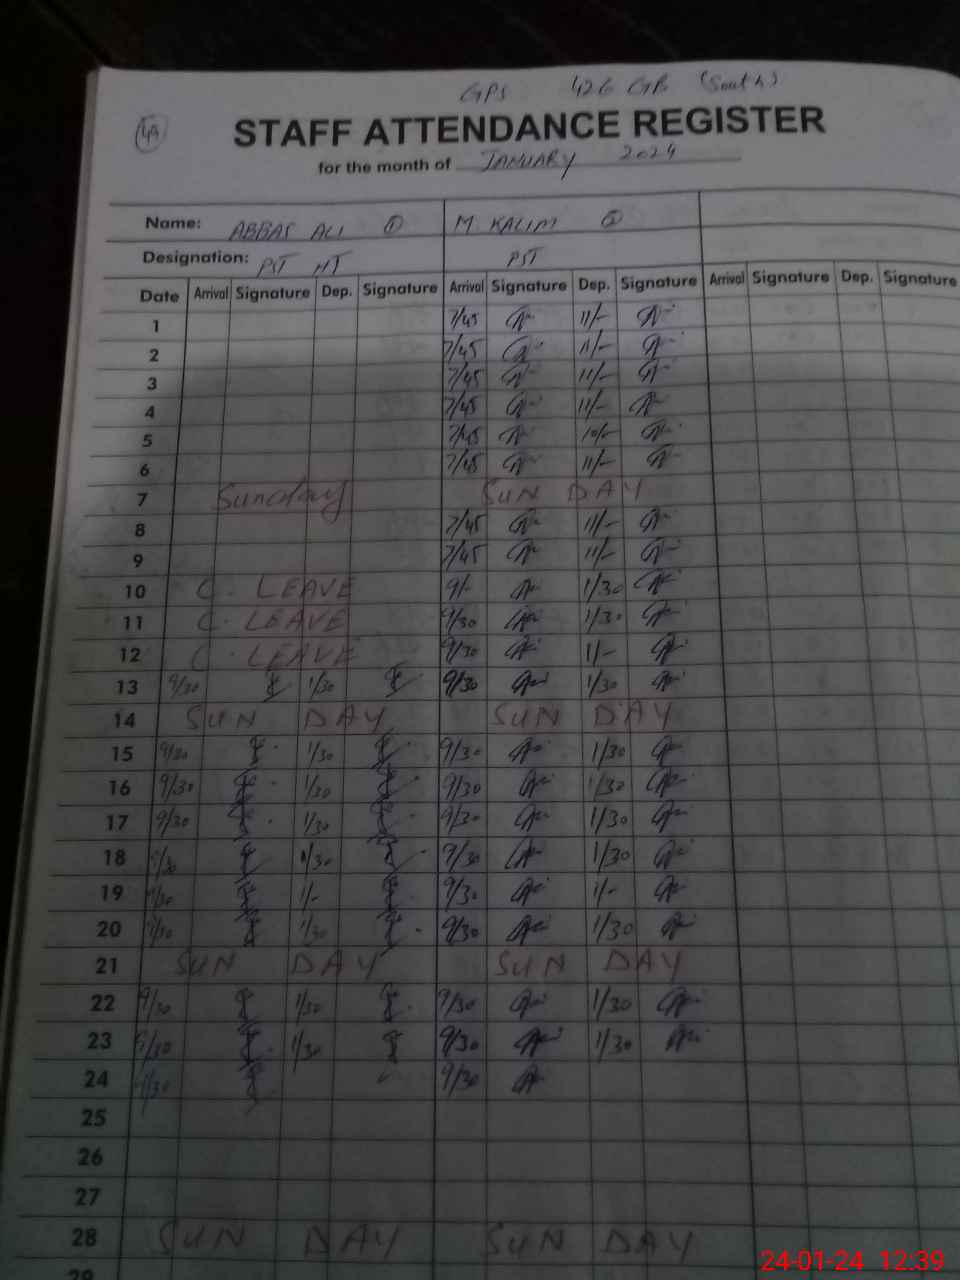 GPS 426 GB (South)
49
STAFF ATTENDANCE REGISTER
for the month of JANUARY 2024
Name: ABBAS ALI 1 M KALIM
Designation: PST HT PST
Date Arrival Signature Dep. Signature Arrival Signature Dep. Signature Arrival Signature Dep. Signature
1 7/45 11/-
2 7/45 11/-
3 7/45 11/-
4 7/45 11/-
5 7/45 10/-
6 7/45 11/-
7 Sunday SUN DAY
8 7/45 11/-
9 7/45 11/-
10 C. LEAVE 9/- 1/30
11 C. LEAVE 9/30 1/30
12 C. LEAVE 9/30 1/-
13 9/30 1/30 9/30 1/30
14 SUN DAY SUN DAY
15 9/30 1/30 9/30 1/30
16 9/30 1/30 9/30 1/30
17 9/30 1/30 9/30 1/30
18 9/30 1/30 9/30 1/30
19 9/30 1/- 9/30 1/-
20 9/30 1/30 9/30 1/30
21 SUN DAY SUN DAY
22 9/30 1/30 9/30 1/30
23 9/30 1/30 9/30 1/30
24 9/30 9/30
25
26
27
28 SUN DAY SUN DAY
29
24-01-24 12:39